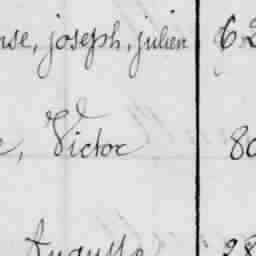 nse, joseph, julien 62
e, Victor 80
Auguste 28